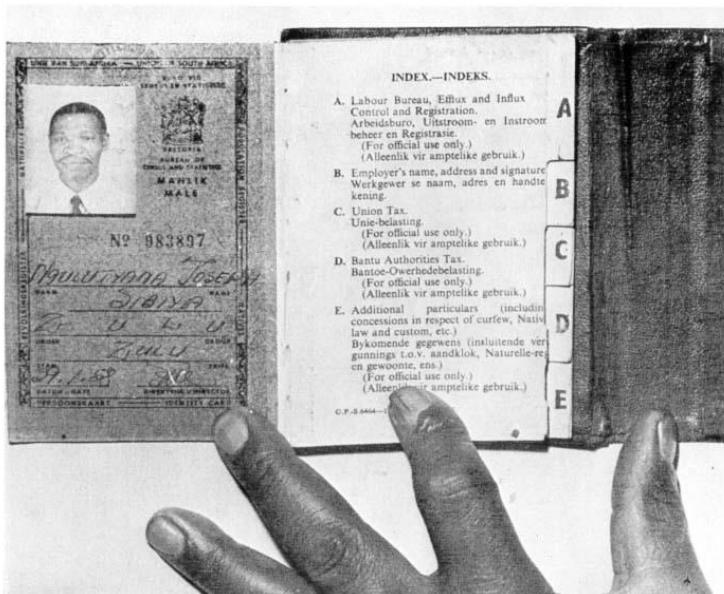 UNIE VAN SUID-AFRIKA — UNION OF SOUTH AFRICA
PRETORIA
BUREAU OF
CENSUS AND STATISTICS
MANLIK
MALE
Nº 983897
JOSEPH
NAAM NAME
SIBIYA
ZULU
DATUM - DATE DIREKTEUR - DIRECTOR
PERSOONSKAART IDENTITY CARD
INDEX.—INDEKS.
A. Labour Bureau, Efflux and Influx
Control and Registration.
Arbeidsburo, Uitstroom- en Instroom
beheer en Registrasie.
(For official use only.)
(Alleenlik vir amptelike gebruik.)
B. Employer's name, address and signature
Werkgewer se naam, adres en handte
kening.
C. Union Tax.
Unie-belasting.
(For official use only.)
(Alleenlik vir amptelike gebruik.)
D. Bantu Authorities Tax.
Bantoe-Owerhedebelasting.
(For official use only.)
(Alleenlik vir amptelike gebruik.)
E. Additional particulars (includin
concessions in respect of curfew, Nativ
law and custom, etc.)
Bykomende gegewens (insluitende ver
gunnings t.o.v. aandklok, Naturelle-re
en gewoonte, ens.)
(For official use only.)
(Alleenlik vir amptelike gebruik.)
G.P.-S
A
B
C
D
E